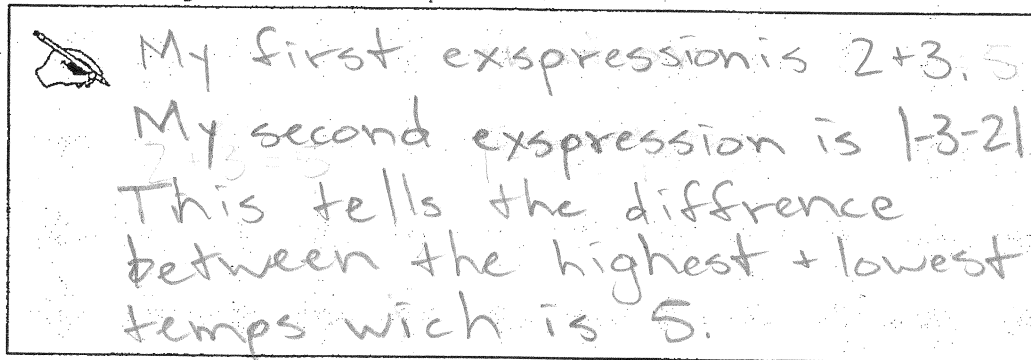 My first exspression is 2+3.
My second exspression is |-3-2|
This tells the diffrence
between the highest + lowest
temps wich is 5.